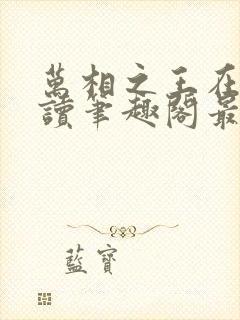 萬相之王在
讀筆趣閣最
藍寶